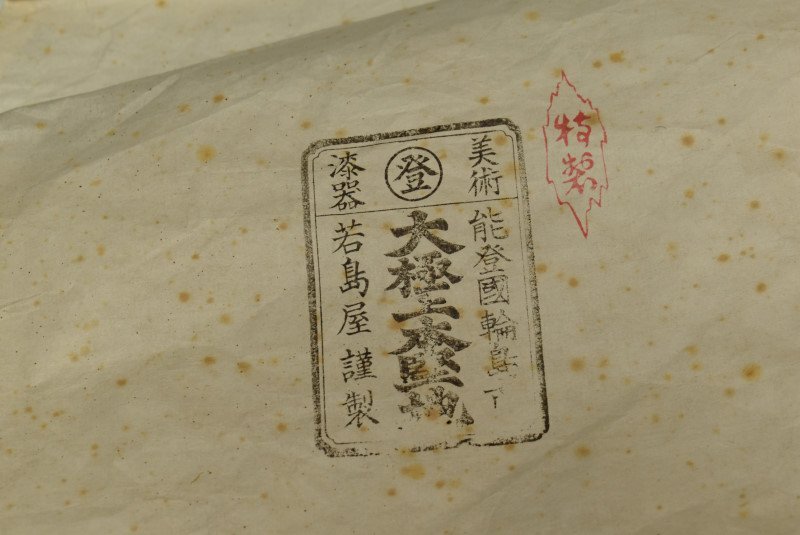 特製
美術
登
漆器
能登國輪島
大極上本堅地
若島屋謹製